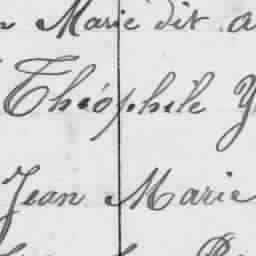 Marie dit a
Théophile Y
Jean Marie